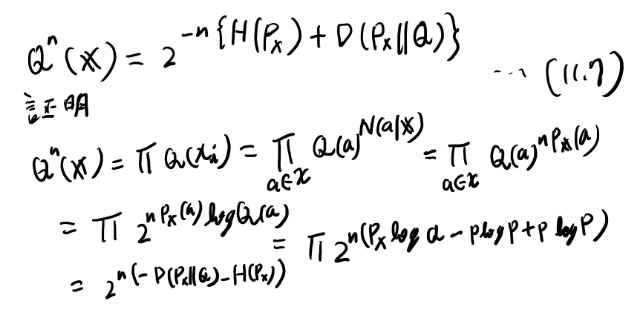 Qⁿ(𝕩) = 2^{-n{H(Pₓ) + D(Pₓ||Q)}} … (11.7)
証明
Qⁿ(𝕩) = Π Q(xᵢ) = Π_{a∈X} Q(a)^{N(a|𝕩)} = Π_{a∈X} Q(a)^{nPₓ(a)}
= Π 2^{nPₓ(a) log Q(a)} = Π 2^{n(Pₓ log Q - p log p + p log p)}
= 2^{n(-D(Pₓ||Q) - H(Pₓ))}